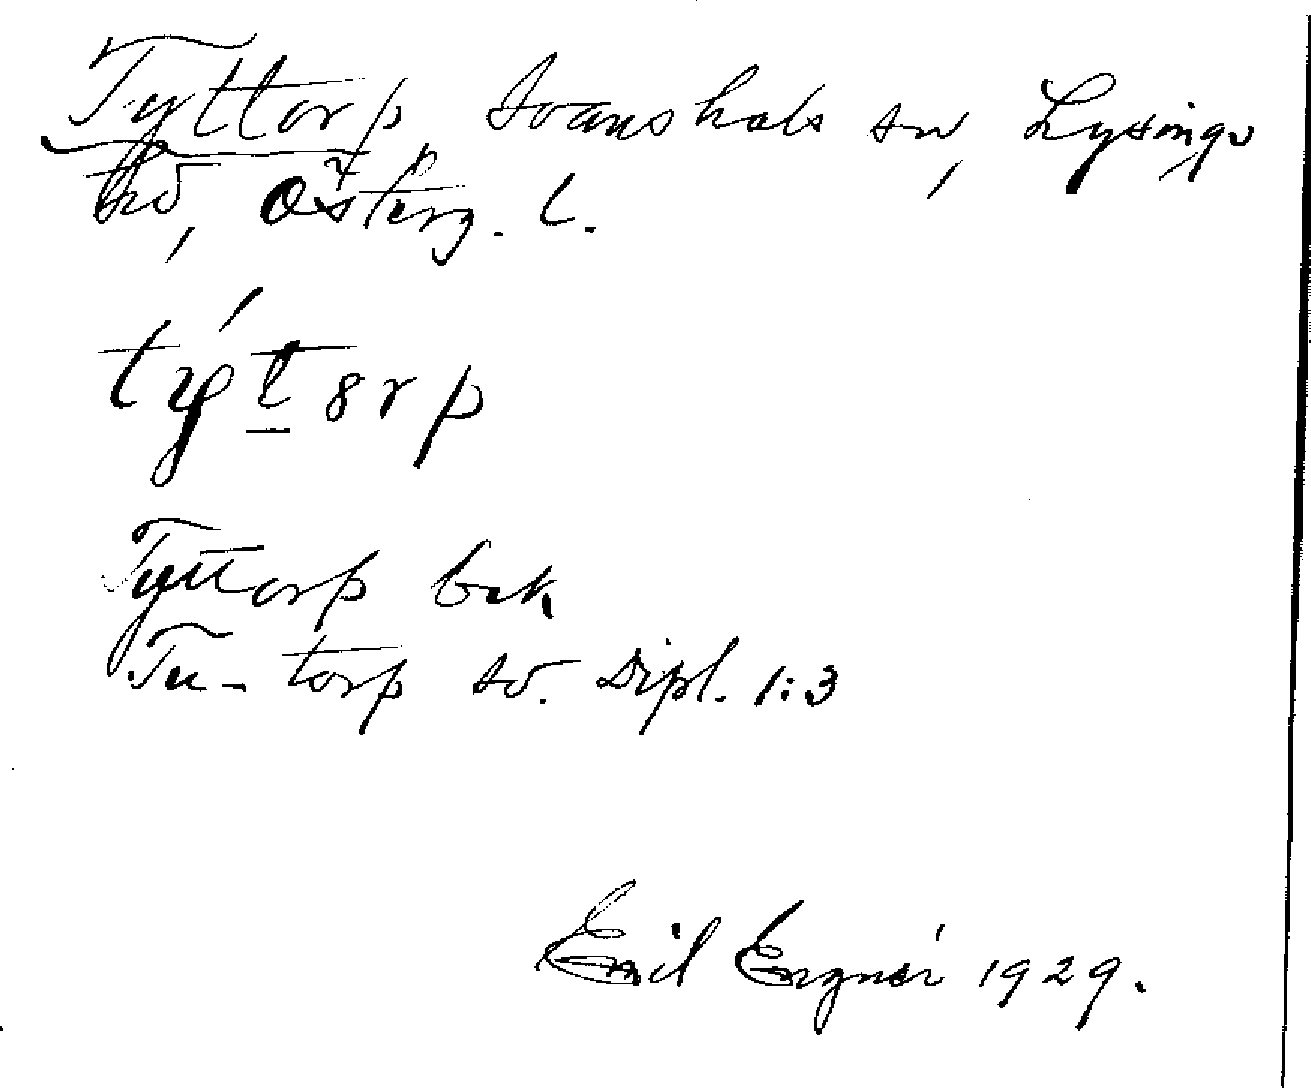 Tyttorp, Svanshals sn, Lysings
hd, Österg. l.
tý́t8rp
Tyttorp bek.
Tu-torp sv. Dipl. 1:3
Emil 1929.